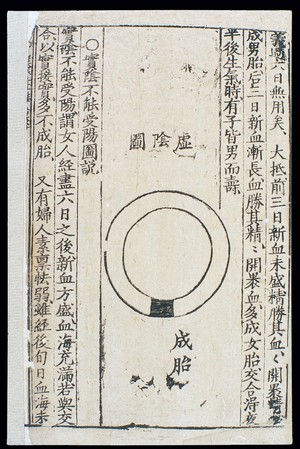 六日無用矣、大抵前三日新血未盛精勝其血、血開裹精
成男胎後二日新血漸長血勝其精、精開裹血、多成女胎交合得夜
半後生氣時有子皆男而壽
虛陰圖
成胎
○實陰不能受陽圖說
實陰不能受陽謂女人經盡六日之後新血方盛血海充滿若與交
合以實接實多不成胎、又有婦人素稟怯弱雖經後旬日血海未